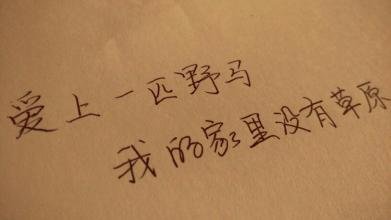 爱上一匹野马
我的家里没有草原